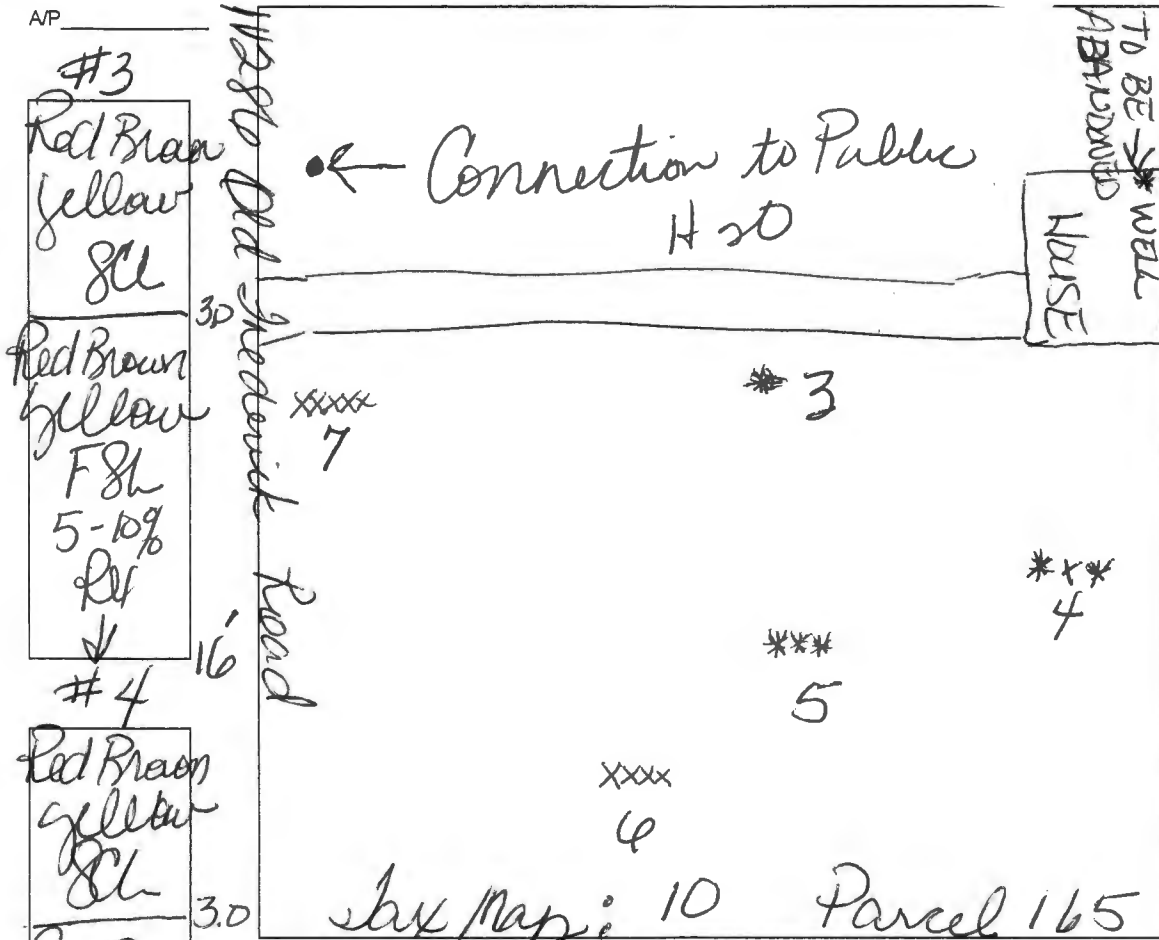 A/P
#3
Red Brown
yellow
SCL
3.0
Red Brown
yellow
FSL
5-10%
16'
#4
Red Brown
yellow
SCL
3.0
Old Frederick Road
Connection to Public
H2O
TO BE
ABANDONED
* WELL
HOUSE
XXXXX
7
* 3
*x*
4
***
5
XXXX
6
Tax Map: 10 Parcel 165